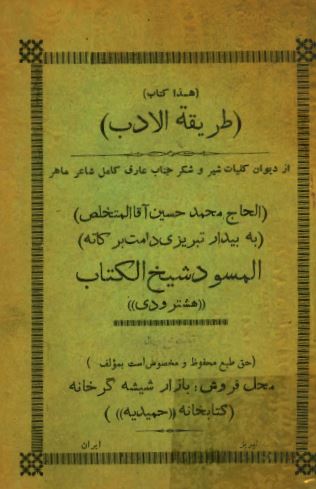 (هـذا کتاب)
(طریقة الادب)
از دیوان کلیات شیر و شکر جناب عارف کامل شاعر ماهر
(الحاج محمد حسین آقا المتخلص)
(به بیدار تبریزی دامت برکاته)
المسود شیخ الکتاب
((هشترودی))
(حق طبع محفوظ و مخصوص است بمؤلف)
محل فروش: بازار شیشه گرخانه
(کتابخانه ((حمیدیه)))
تبریز ایران